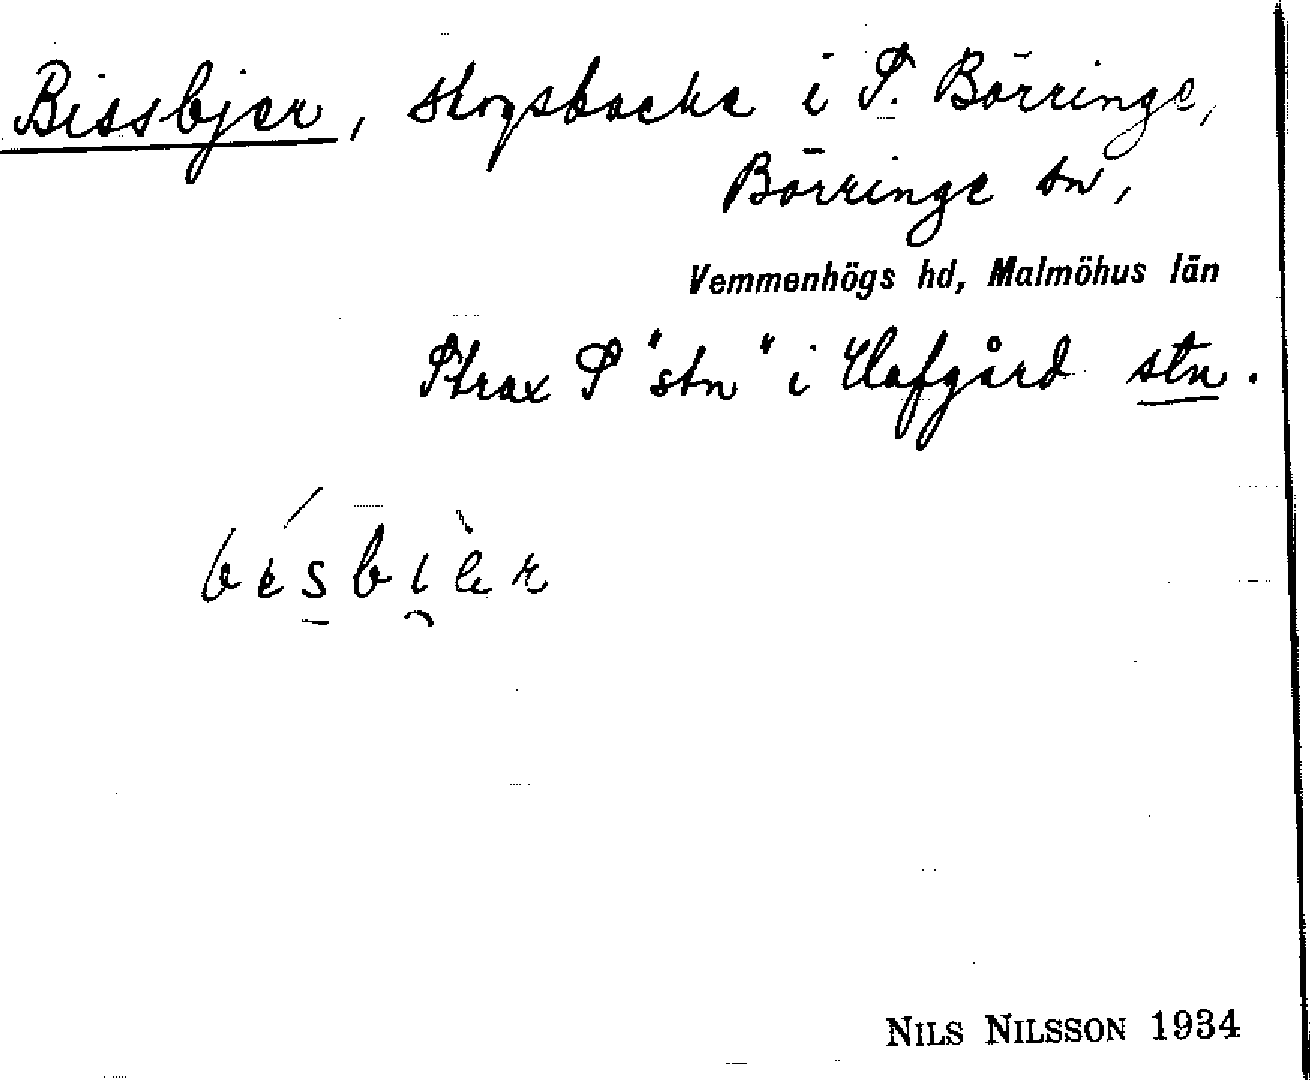 Bissbjer, skogsbacke i S. Börringe,
Börringe sn,
Vemmenhögs hd, Malmöhus län
Strax S "stn" i Klafgård stn.
besbier
NILS NILSSON 1934